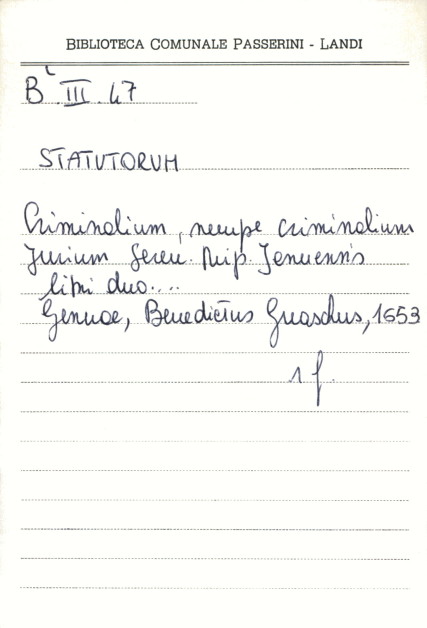 BIBLIOTECA COMUNALE PASSERINI - LANDI
B III. 47
STATUTORUM
Criminalium, nempe criminalium
Jurium Seren. Reip. Jenuensis
libri duo....
Genuae, Benedictus Guaschus, 1653
1 f.